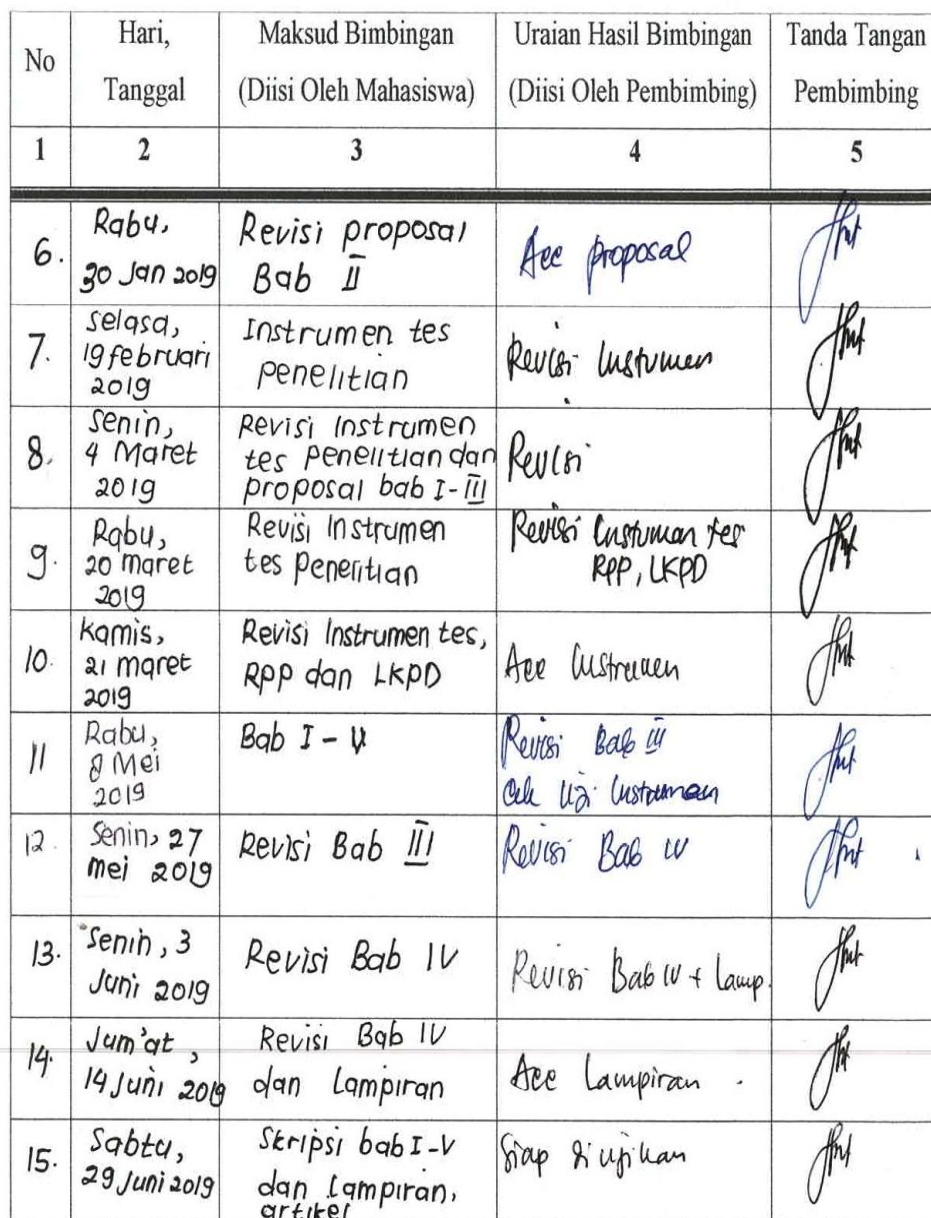 No
Hari,
Tanggal
Maksud Bimbingan
(Diisi Oleh Mahasiswa)
Uraian Hasil Bimbingan
(Diisi Oleh Pembimbing)
Tanda Tangan
Pembimbing
1 2 3 4 5
6.
Rabu,
30 Jan 2019
Revisi proposal
Bab II
Acc proposal
7.
Selasa,
19 februari
2019
Instrumen tes
penelitian
Revisi Instumen
8.
Senin,
4 Maret
2019
Revisi Instrumen
tes penelitian dan
proposal bab I-III
Revisi
9.
Rabu,
20 maret
2019
Revisi Instrumen
tes Penelitian
Revisi Instumen tes
RPP, LKPD
10.
Kamis,
21 maret
2019
Revisi Instrumen tes,
RPP dan LKPD
Acc Instrumen
11
Rabu,
8 Mei
2019
Bab I - V
Revisi Bab III
Cek Uji Instrumen
12.
Senin, 27
mei 2019
Revisi Bab III
Revisi Bab IV
13.
Senin, 3
Juni 2019
Revisi Bab IV
Revisi Bab IV + Lamp.
14.
Jum'at,
14 Juni 2019
Revisi Bab IV
dan Lampiran
Acc Lampiran
15.
Sabtu,
29 Juni 2019
Skripsi bab I-V
dan Lampiran,
artikel
Siap di ujikan